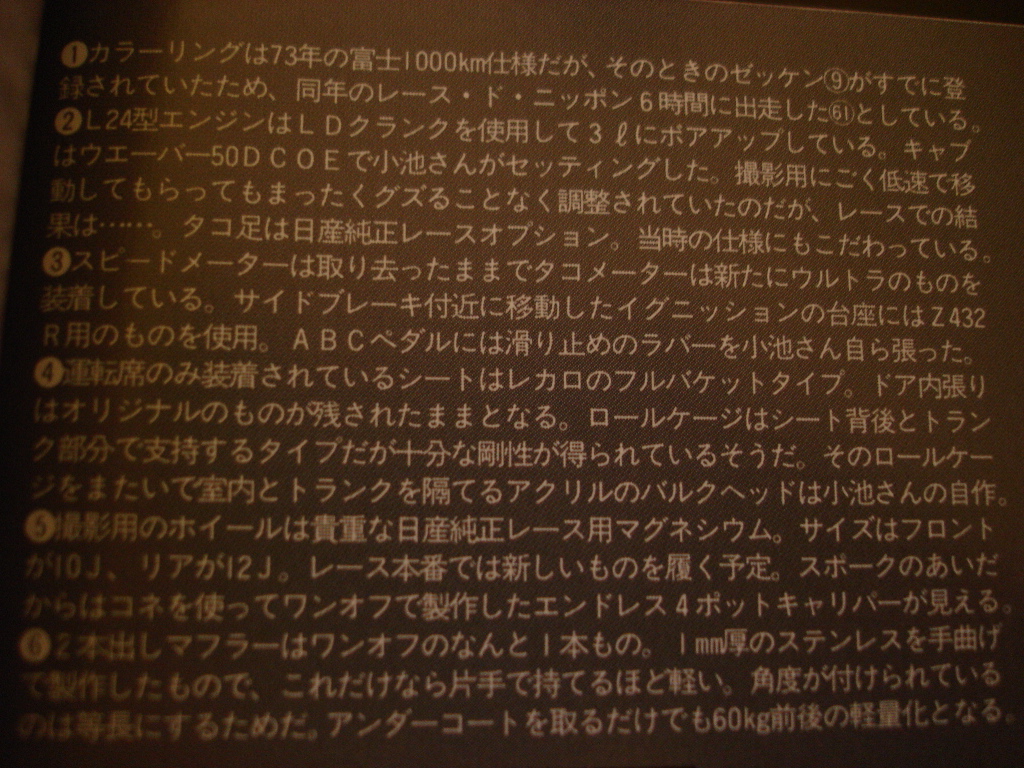 ❶カラーリングは73年の富士1000km仕様だが、そのときのゼッケン⑨がすでに登
録されていたため、同年のレース・ド・ニッポン6時間に出走した㉑としている。
❷L24型エンジンはLDクランクを使用して3ℓにボアアップしている。キャブ
はウエーバー50DCOEで小池さんがセッティングした。撮影用にごく低速で移
動してもらってもまったくグズることなく調整されていたのだが、レースでの結
果は……。タコ足は日産純正レースオプション。当時の仕様にもこだわっている。
❸スピードメーターは取り去ったままでタコメーターは新たにウルトラのものを
装着している。サイドブレーキ付近に移動したイグニッションの台座にはZ432
R用のものを使用。ABCペダルには滑り止めのラバーを小池さん自ら張った。
❹運転席のみ装着されているシートはレカロのフルバケットタイプ。ドア内張り
はオリジナルのものが残されたままとなる。ロールケージはシート背後とトラン
ク部分で支持するタイプだが十分な剛性が得られているそうだ。そのロールケー
ジをまたいで室内とトランクを隔てるアクリルのバルクヘッドは小池さんの自作。
❺撮影用のホイールは貴重な日産純正レース用マグネシウム。サイズはフロント
が10J、リアが12J。レース本番では新しいものを履く予定。スポークのあいだ
からはコネを使ってワンオフで製作したエンドレス4ポットキャリパーが見える。
❻2本出しマフラーはワンオフのなんと1本もの。1mm厚のステンレスを手曲げ
で製作したもので、これだけなら片手で持てるほど軽い。角度が付けられている
のは等長にするためだ。アンダーコートを取るだけでも60kg前後の軽量化となる。